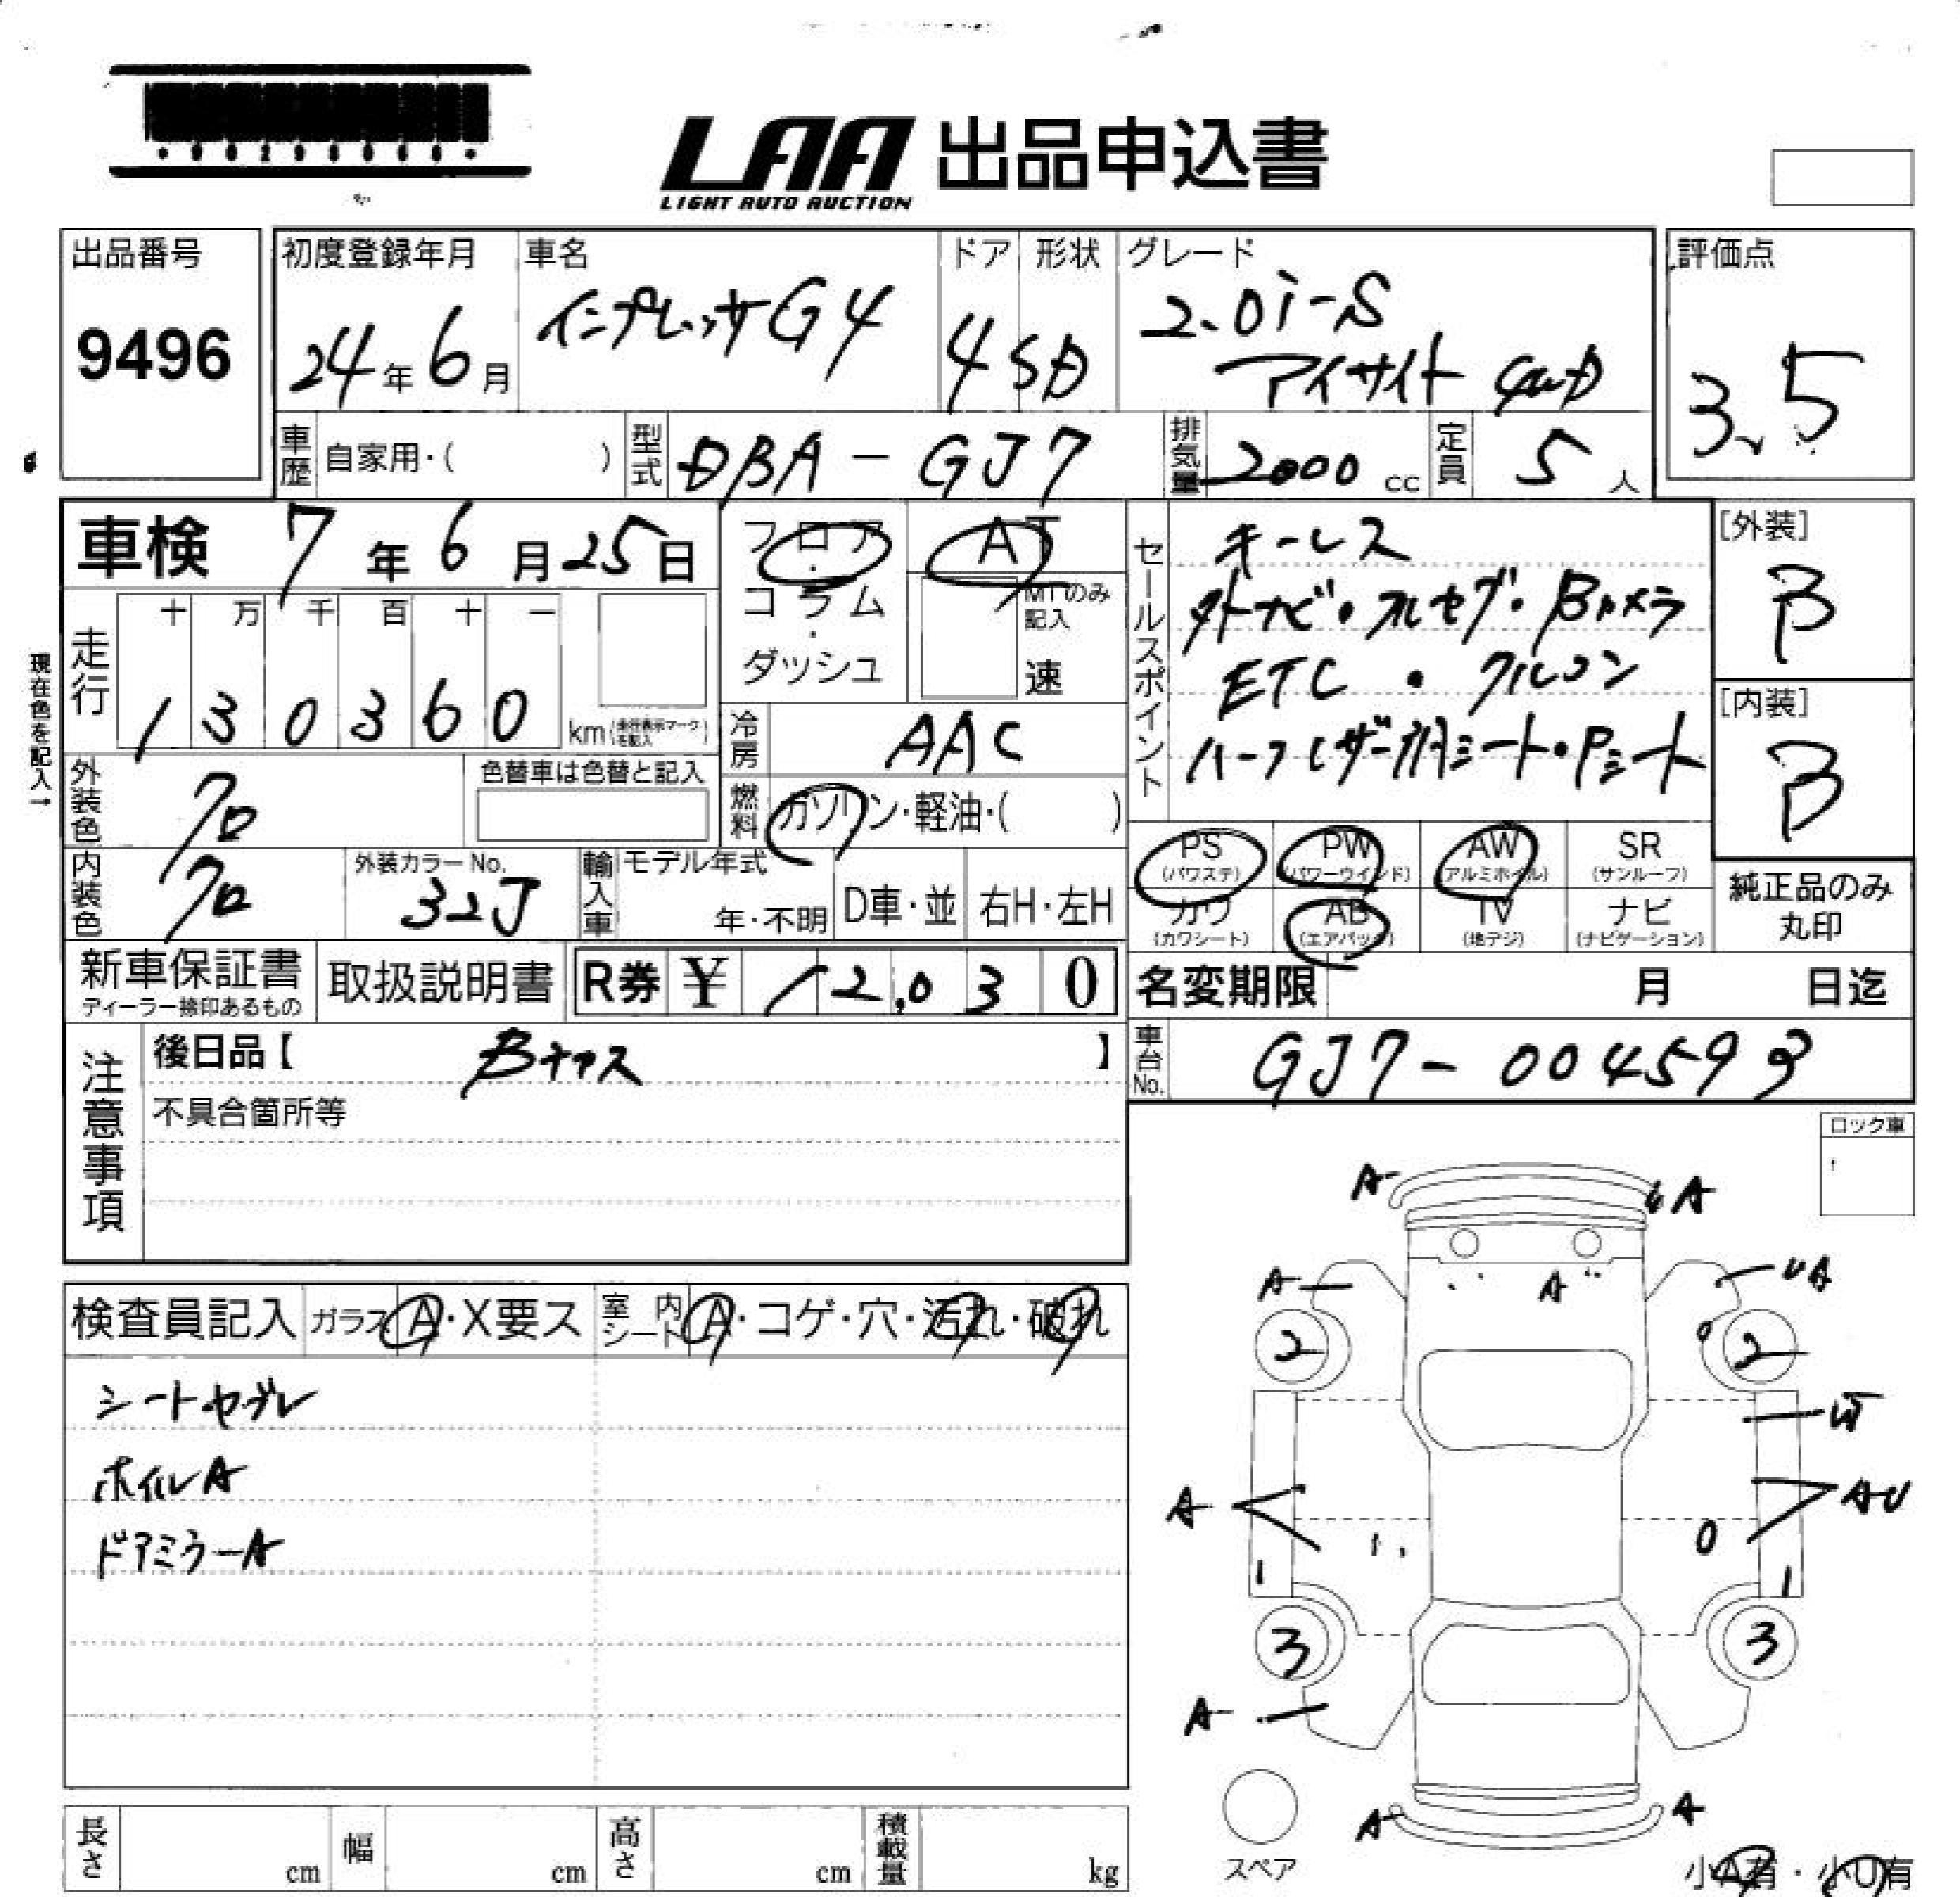 LAA 出品申込書
LIGHT AUTO AUCTION
出品番号
9496
初度登録年月
24年6月
車名
インプレッサG4
ドア
4
形状
SD
グレード
2.0i-S
アイサイト 4WD
評価点
3.5
車歴
自家用・( )
型式
DBA-GJ7
排気量
2000cc
定員
5人
車検 7年6月25日
フロア・コラム・ダッシュ
AT
MTのみ記入
速
セールスポイント
キーレス
外ナビ・フルセグ・Bカメラ
ETC・クルコン
ハーフレザー調シート・Pシート
[外装]
B
[内装]
B
現在色を記入→
走行
十万千百十一
130360
km(走行表示マークを記入)
冷房
AAC
燃料
ガソリン・軽油・( )
外装色
クロ
色替車は色替と記入
内装色
クロ
外装カラーNo.
32J
輸入車
モデル年式
年・不明
D車・並
右H・左H
PS
(パワステ)
PW
(パワーウインド)
AW
(アルミホイル)
SR
(サンルーフ)
カワ
(カワシート)
AB
(エアバッグ)
TV
(地デジ)
ナビ
(ナビゲーション)
純正品のみ
丸印
新車保証書
ディーラー捺印あるもの
取扱説明書
R券 ¥ 12,030
名変期限 月 日迄
車台No.
GJ7-004593
注意事項
後日品【 】
不具合箇所等
ロック車
検査員記入
ガラス A・X要ス
室内シート A・コゲ・穴・汚れ・破れ
シートヤブレ
ホイルA
ドアミラーA
A
A
A
A
UA
2
2
W
A
AU
1
1
3
3
A
A
A
スペア
小A有・小U有
長さ cm
幅 cm
高さ cm
積載量 kg